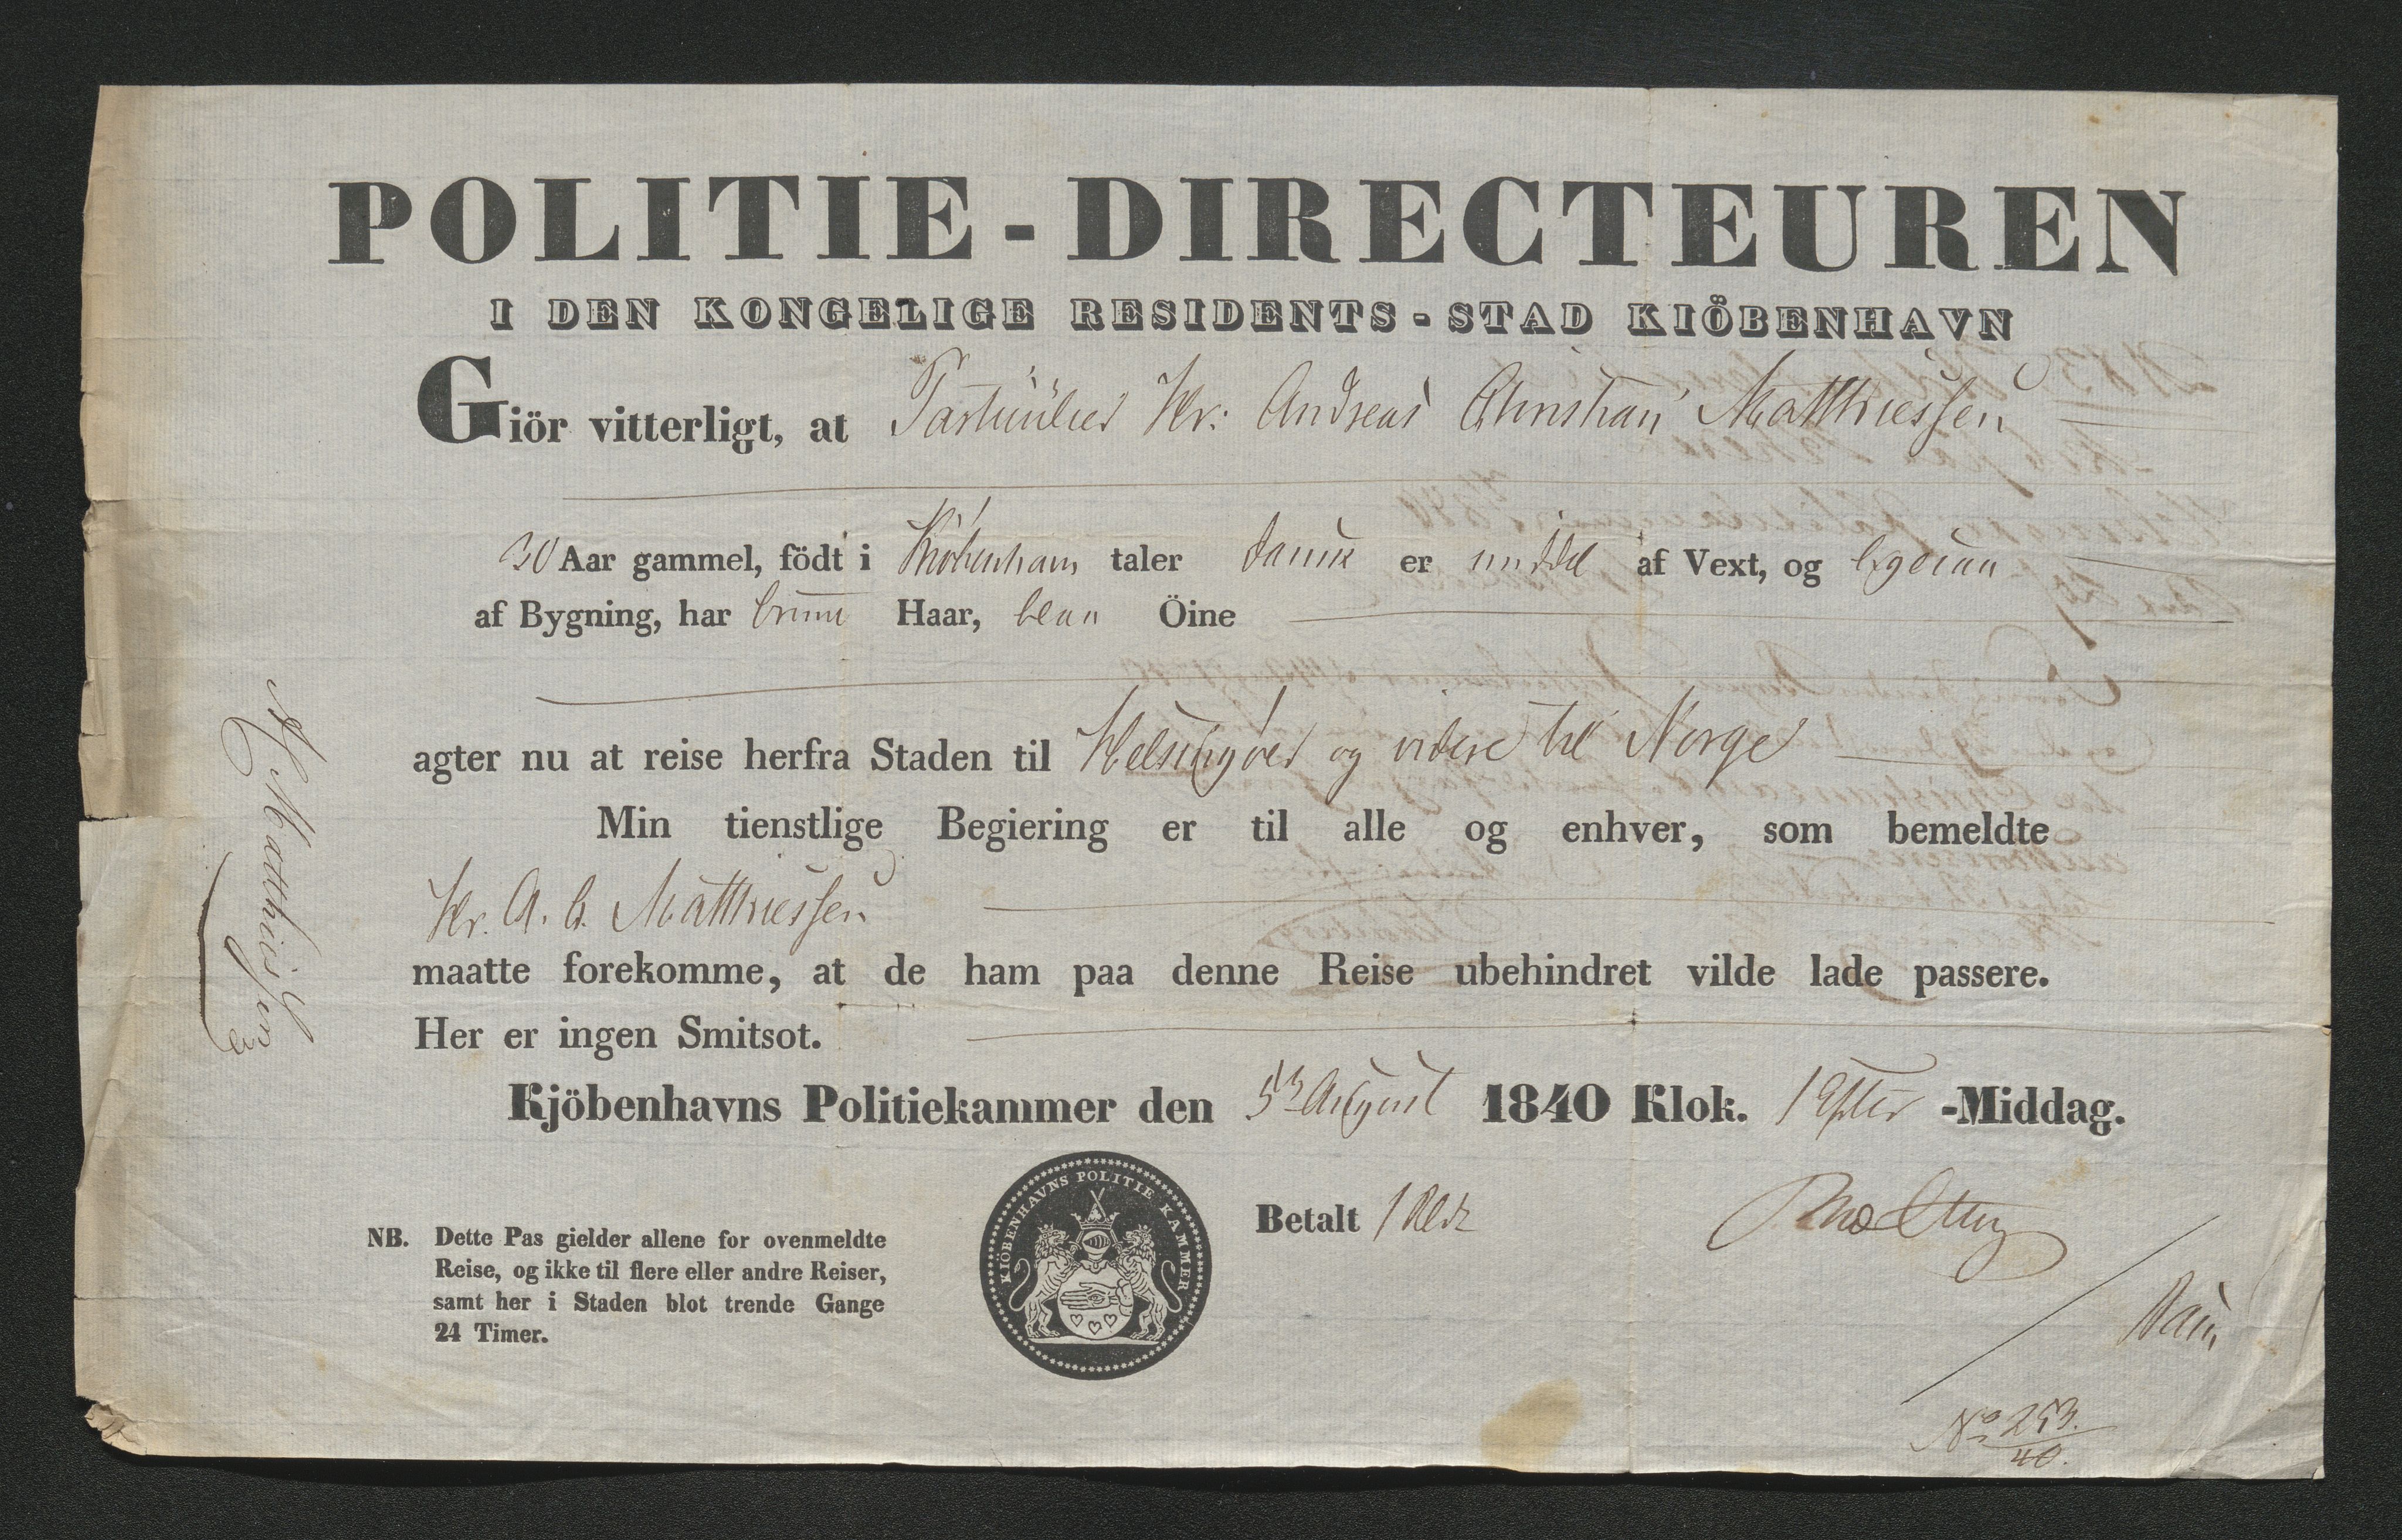 POLITIE-DIRECTEUREN
I DEN KONGELIGE RESIDENTS-STAD KIÖBENHAVN
Giör vitterligt, at Particulier Hr: Andreas Christian Matthiessen
30 Aar gammel, födt i Kiöbenhavn taler dansk er middel af Vext, og
af Bygning, har brunt Haar, blaa Öine
agter nu at reise herfra Staden til Helsingöer og videre til Norge
Min tienstlige Begiering er til alle og enhver, som bemeldte
Hr. A. C. Matthiessen
maatte forekomme, at de ham paa denne Reise ubehindret vilde lade passere.
Her er ingen Smitsot.
Kjöbenhavns Politiekammer den 5te August 1840 Klok. 1 Efter-Middag.
KIÖBENHAVNS POLITIE KAMMER
Betalt 1
NB. Dette Pas gielder allene for ovenmeldte
Reise, og ikke til flere eller andre Reiser,
samt her i Staden blot trende Gange
24 Timer.
No 253.
40.
A Matthiessen